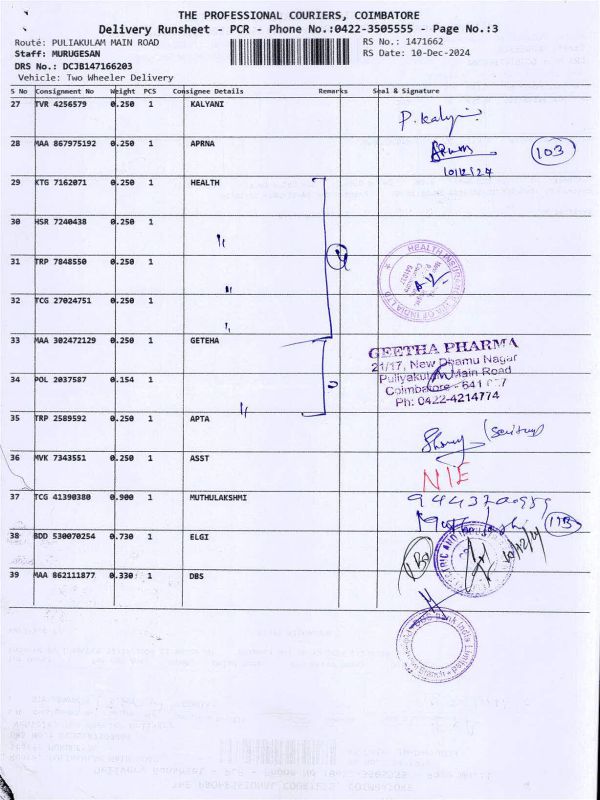 THE PROFESSIONAL COURIERS, COIMBATORE
Delivery Runsheet - PCR - Phone No.:0422-3505555 - Page No.:3
Route: PULIAKULAM MAIN ROAD RS No.: 1471662
Staff: MURUGESAN RS Date: 10-Dec-2024
DRS No.: DCJB147166203
Vehicle: Two Wheeler Delivery
S No Consignment No Weight PCS Consignee Details Remarks Seal & Signature
27 TVR 4256579 0.250 1 KALYANI
P. Kalyani
28 MAA 867975192 0.250 1 APRNA
103
10/12/24
29 KTG 7162071 0.250 1 HEALTH
30 HSR 7240438 0.250 1 "
4
31 TRP 7848550 0.250 1 "
HEALTH INSURANCE TPA OF INDIA LTD
32 TCG 27024751 0.250 1 "
33 MAA 302472129 0.250 1 GETEHA
GEETHA PHARMA
21/17, New Dhamu Nagar
Puliyakulam Main Road
Coimbatore - 641
Ph: 0422-4214774
34 POL 2037587 0.154 1 "
35 TRP 2589592 0.250 1 APTA
36 MVK 7343551 0.250 1 ASST
NIE
37 TCG 41390380 0.900 1 MUTHULAKSHMI
113
38 BDD 530070254 0.730 1 ELGI
39 MAA 862111877 0.330 1 DBS
Bank India Limited